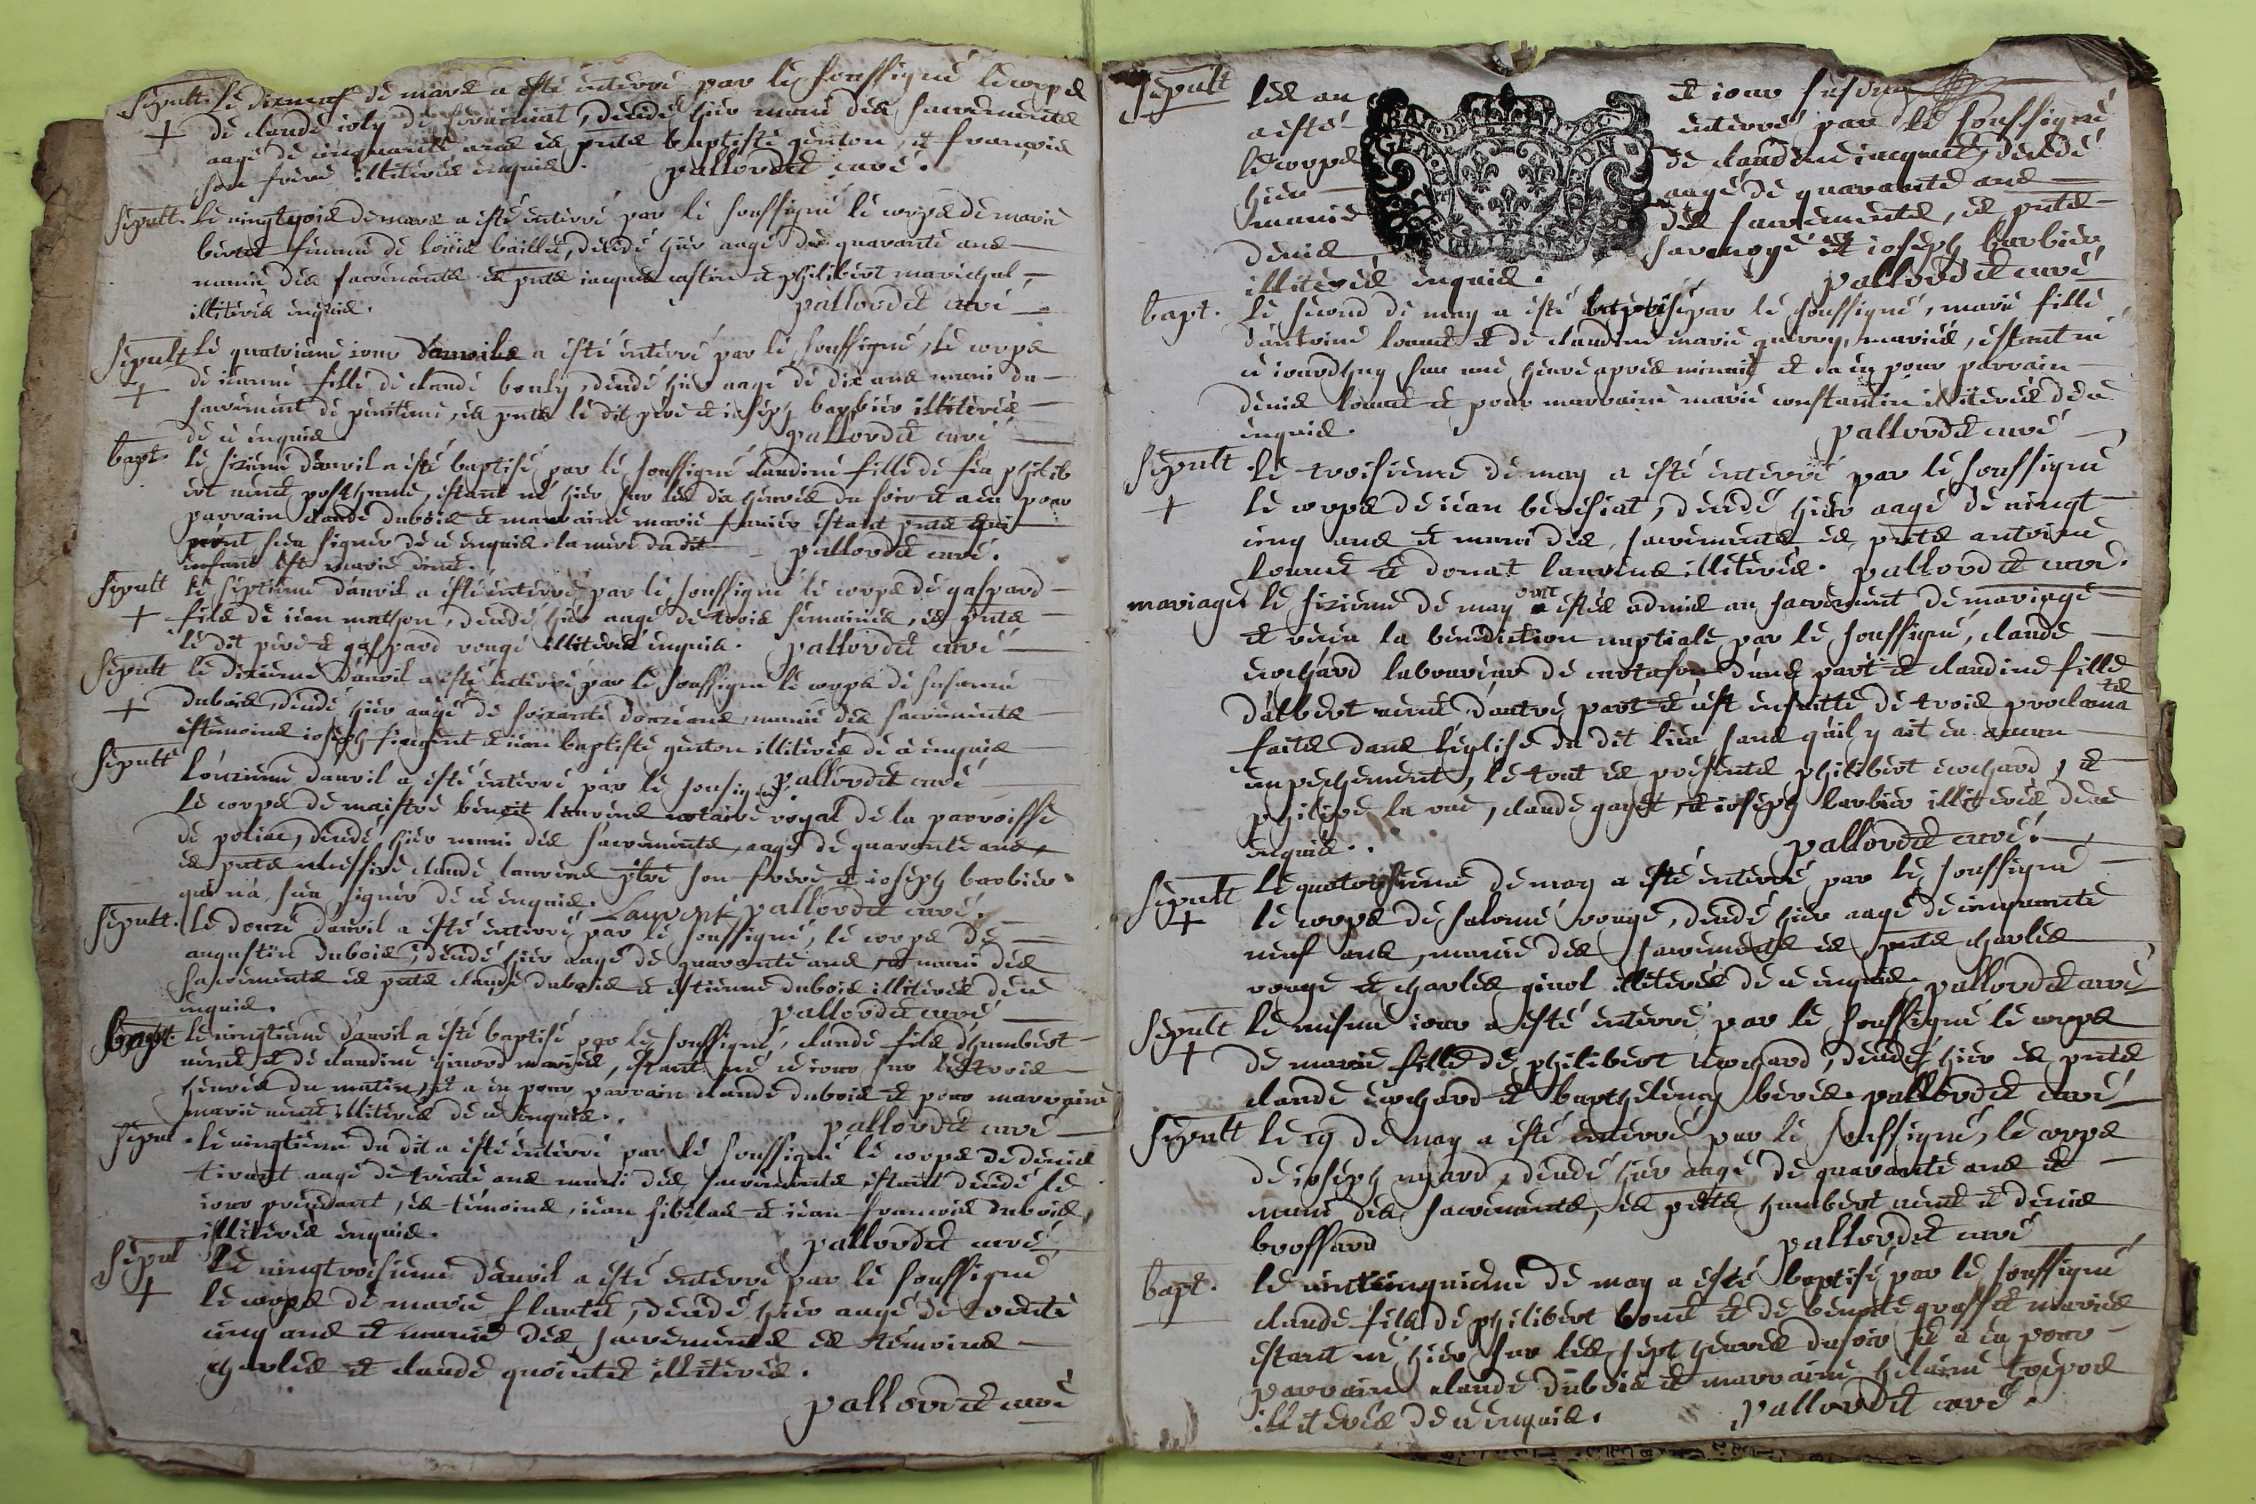 sepult. le dixneuf de mars a esté enterré par le soussigné le corps
de claude joly de decedé hier muni des sacrements
aagé de cinquante ans és pnts baptiste genton et francois
son frere illiterés enquis. pallordet curé.
sepult. le vingtrois de mars a esté enterré par le soussigné le corps de marie
femme de louis baillet, decedé hier aagé de quarante ans
munie des sacrements és pnts jacques et philibert marechal
illiterés enquis. pallordet curé
sepult le quatrieme jour d'avril a esté enterré par le soussigné, le corps
de jeanne fille de claude bouly, decedé hier aagé de dix ans muni du
sacrement de penitence, és pnts le dit pere et joseph barbier illiterés
de ce enquis pallordet curé
bapt. le sizieme d'avril a esté baptisé par le soussigné claudine fille de feu philib
ert posthume, estant né hier sur les dix heures du soir et a eu pour
parrain claude dubois et marraine marie estant pnts qui
n'ont sceu signer de ce enquis. la mere du dit pallordet curé.
enfant est marie
sepult le septieme d'avril a esté enterré par le soussigné le corps de gaspard
fils de jean mathon, decedé hier aagé de trois semaines, és pnts
le dit pere et gaspard rougé illiterés enquis. pallordet curé
sepult le dixieme d'avril a esté enterré par le soussigné le corps de susanne
dubois, decedé hier aagé de soixante douze ans munie des sacrements
és temoins joseph et jean baptiste genton illiterés de ce enquis
sepult l'onzieme d'avril a esté enterré par le sousigné pallordet curé
le corps de maistre benoit laurens notaire royal de la parroisse
de poliac, decedé hier muni des sacrements, aagé de quarante ans,
és pnts messire claude laurens ptre son frere et joseph barbier
qui n'a sceu signer de ce enquis. Laurent pallordet curé.
sepult. le douze d'avril a esté enterré par le soussigné, le corps de
augustin dubois, decedé hier aagé de quarante ans, et muni des
sacrements és pnts claude dubois et estienne dubois illiterés de ce
enquis. pallordet curé
bapt. le vingtieme d'avril a esté baptisé par le soussigné, claude fils d'humbert
et de claudine ginord mariés, estant né ce jour sur les trois
heures du matin, et a eu pour parrain claude dubois et pour marraine
marie illiterés de ce enquis. pallordet curé
sepul le vingtieme du dit a esté enterré par le soussigné le corps de denis
tivant aagé de trente ans muni des sacrements estant decedé le
jour precedant, és temoins, jean sibelas et jean francois dubois,
illiterés enquis. pallordet curé
sepul le vingtroisieme d'avril a esté enterré par le soussigné
le corps de marie flantet, decedé hier aagé de trente
cinq ans et munie des sacrements és temoins
charles et claude quointet illiterés.
pallordet curé
sepult les an et jour susdit
a esté enterré par le soussigné
le corps de claudine jacquet, decedé
hier aagé de quarante ans
munie des sacrements, és pnts
denis et joseph barbier
illiterés enquis. pallordet curé
bapt. le second de may a esté baptisé par le soussigné, marie fille
d'antoine louvet et de claudine marie guerry, mariés, estant né
ce jourdhuy sur une heure apres minuit et a eu pour parrain
denis louvet et pour marraine marie constantin illiterés de ce
enquis. pallordet curé
sepult le troisieme de may a esté enterré par le soussigné
le corps de jean benesiat, decedé hier aagé de vingt
cinq ans et muni des sacrements és pnts antoine
louvet et donat laurens illiterés. pallordet curé.
mariages le sizieme de may ont estés admis au sacrement de mariage
et receu la benediction nuptiale par le soussigné, claude
cochard laboureur de d'une part et claudine fille
d'albert d'autre part et est ensuitte de trois proclama
tes
faits dans l'eglise du dit lieu sans qu'il y ait eu aucun
empechement, le tout és presents philibert cochard, et
philipe la rue, claude gayet, et joseph barbier illiterés de ce
enquis. pallordet curé.
sepult le quatorsieme de may a esté enterré par le soussigné
le corps de salomé rougé, decedé hier aagé de cinquante
neuf ans, munie des sacrements és pnts charles
rougé et charles ginol illiterés de ce enquis pallordet curé
sepult le mesme jour a esté enterré par le soussigné le corps
de marie fille de philibert cochard, decedé hier és pnts
claude cochard et barthelemy pallordet curé
sepult le 19 de may a esté enterré par le soussigné, le corps
de joseph decedé hier aagé de quarante ans et
muni des sacrements, és pnts humbert et denis
brossard pallordet curé
bapt. le vintcinquieme de may a esté baptisé par le soussigné
claude fils de philibert et de benoite grosset mariés
estant né hier sur les sept heures du soir et a eu pour
parrain claude dubois et marraine helaine
illiterés de ce enquis. pallordet curé.